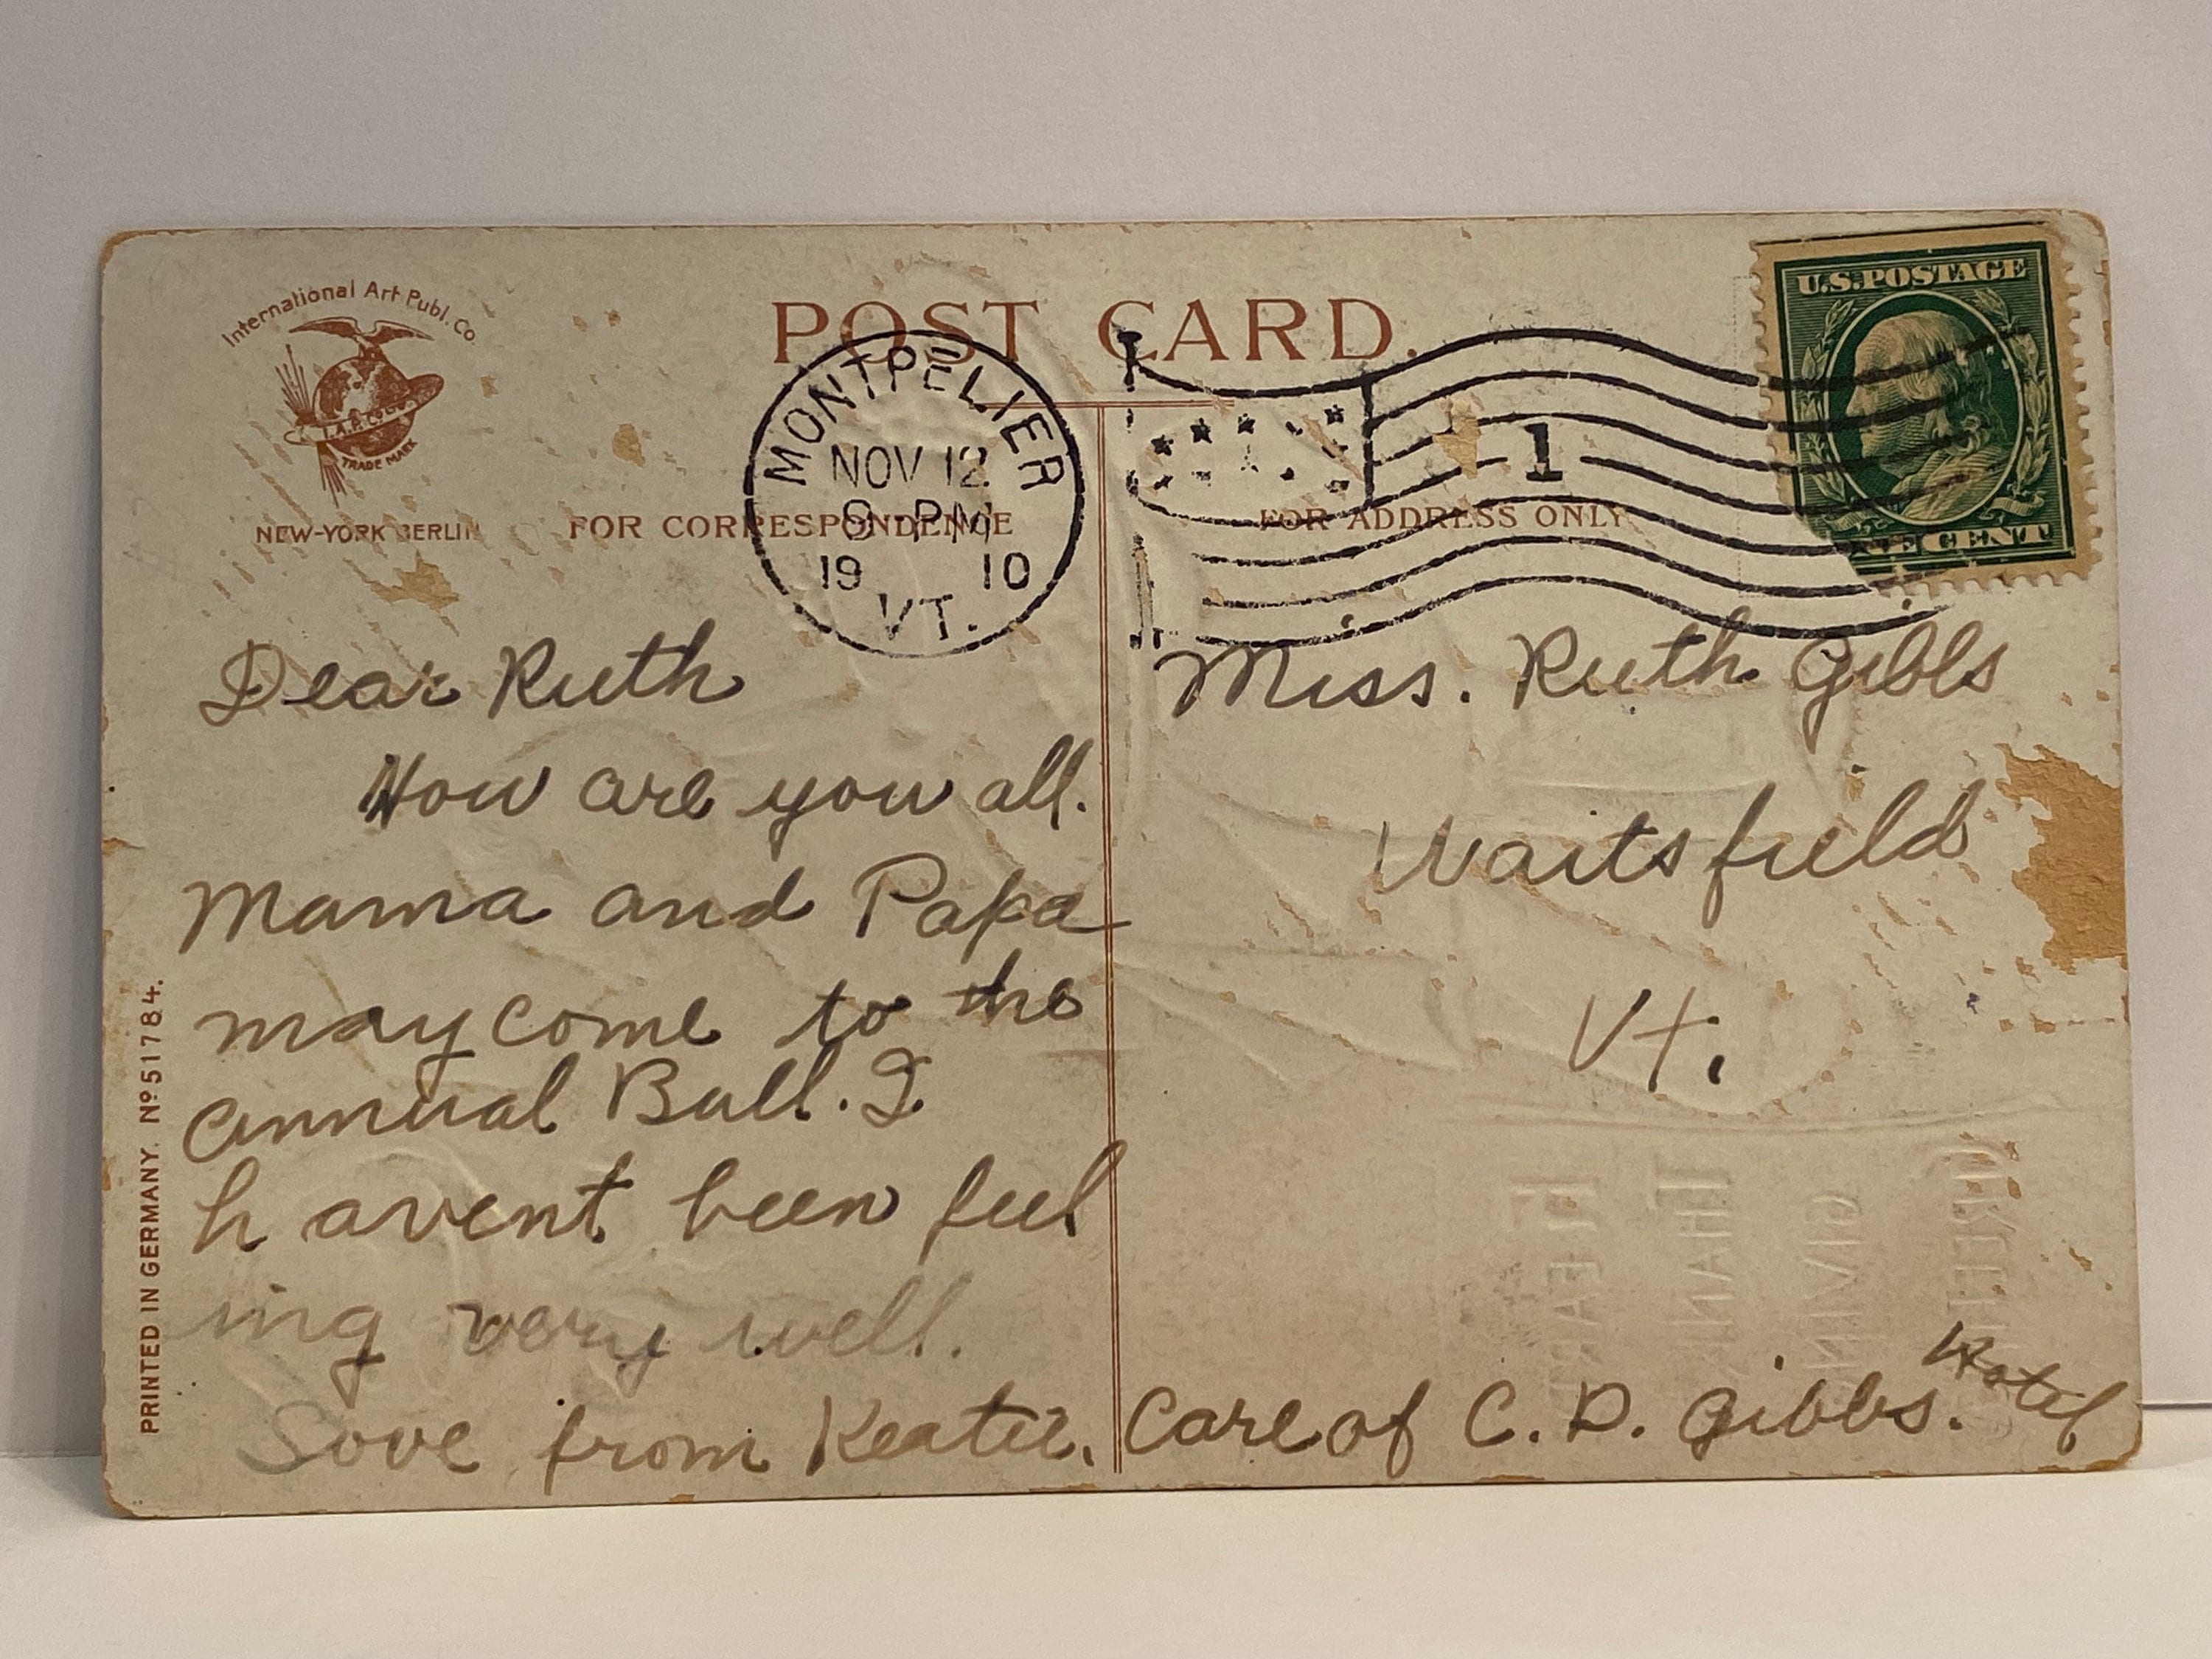 International Art Publ. Co.
TRADE MARK
NEW-YORK BERLIN
POST CARD.
FOR CORRESPONDENCE
FOR ADDRESS ONLY
MONTPELIER
NOV 12
8 PM
19 10
VT.
1
U.S. POSTAGE
CENT
Dear Ruth
How are you all.
Mama and Papa
may come to the
annual Ball. I
havent been feel
ing very well.
Love from Keatie.
Miss. Ruth Gibbs
Waitsfield
Vt.
Care of C. D. Gibbs. Hotel
PRINTED IN GERMANY. Nº 51784.